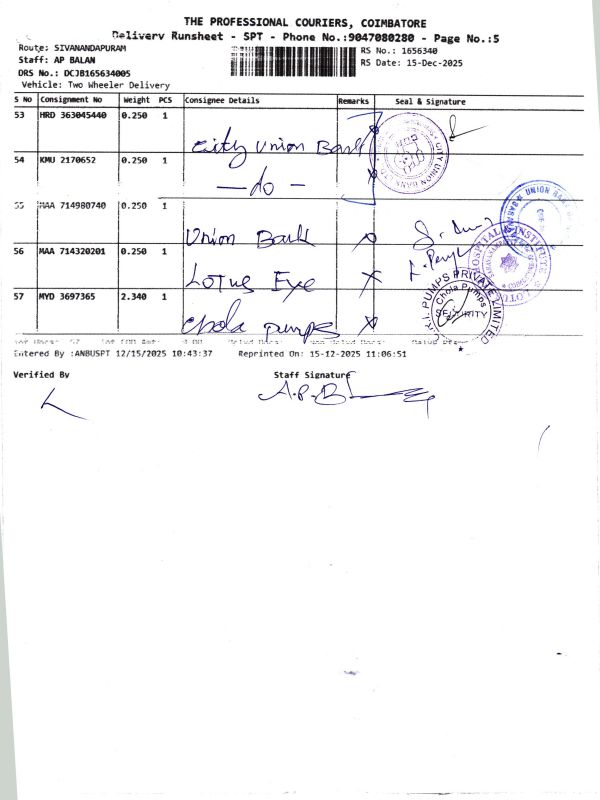 THE PROFESSIONAL COURIERS, COIMBATORE
Delivery Runsheet - SPT - Phone No.:9047080280 - Page No.:5
Route: SIVANANDAPURAM
RS No.: 1656340
Staff: AP BALAN
RS Date: 15-Dec-2025
DRS No.: DCJB165634005
Vehicle: Two Wheeler Delivery
S No Consignment No Weight PCS Consignee Details Remarks Seal & Signature
53 HRD 363045440 0.250 1
City Union Bank
54 KMU 2170652 0.250 1
- do -
55 MAA 714980740 0.250 1
Union Bank
56 MAA 714320201 0.250 1
Lotus Eye
57 MYD 3697365 2.340 1
Chola pumps
CITY UNION BANK
UNION BANK
HOSPITAL & INSTITUTE
PUMPS PRIVATE LIMITED
Chola Pumps
SECURITY
Entered By :ANBUSPT 12/15/2025 10:43:37 Reprinted On: 15-12-2025 11:06:51
Verified By Staff Signature
A.P.B